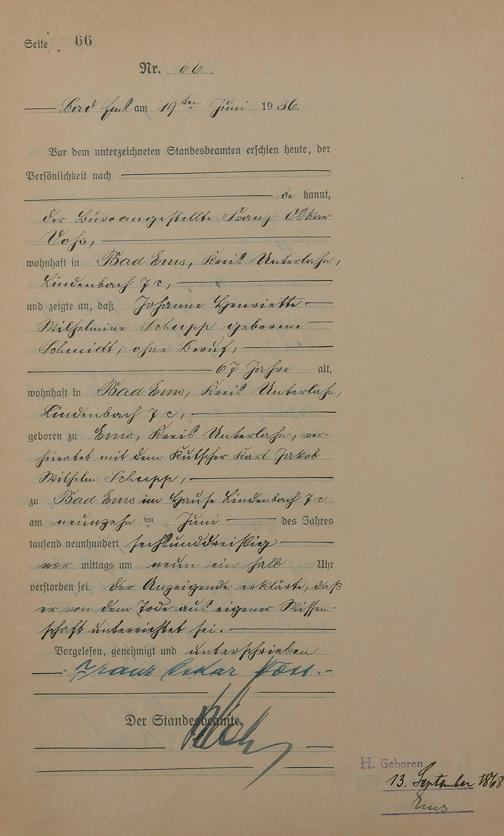 Seite 66
Nr. 66
Bad Ems am 19ten Juni 1936.
Vor dem unterzeichneten Standesbeamten erschien heute, der
Persönlichkeit nach
be kannt,
der Büroangestellte Franz Oskar
wohnhaft in Bad Ems, Kreis Unterlahn,
Lindenbach 7c,
und zeigte an, daß Johanne Henriette
Wilhelmine geborene
Schmidt, ohne Beruf,
67 Jahre alt,
wohnhaft in Bad Ems, Kreis Unterlahn,
Lindenbach 7c,
geboren zu Ems, Kreis Unterlahn, ver-
heiratet mit dem Kutscher Karl Jakob
Wilhelm
zu Bad Ems im Hause Lindenbach 7c
am neunzehn ten Juni des Jahres
tausend neunhundert sechsunddreißig
vor mittags um neun ein halb Uhr
verstorben sei. Der Anzeigende erklärte, daß
er von dem Tode aus eigener Wissen-
schaft unterrichtet sei.
Vorgelesen, genehmigt und unterschrieben
Franz Oskar
Der Standesbeamte.
H. Geboren
13. September 1868
Ems